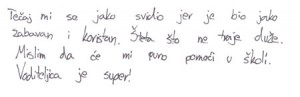 Tečaj mi se jako svidio jer je bio jako
zabavan i koristan. Šteta što ne traje duže.
Mislim da će mi puno pomoći u školi.
Voditeljica je super!